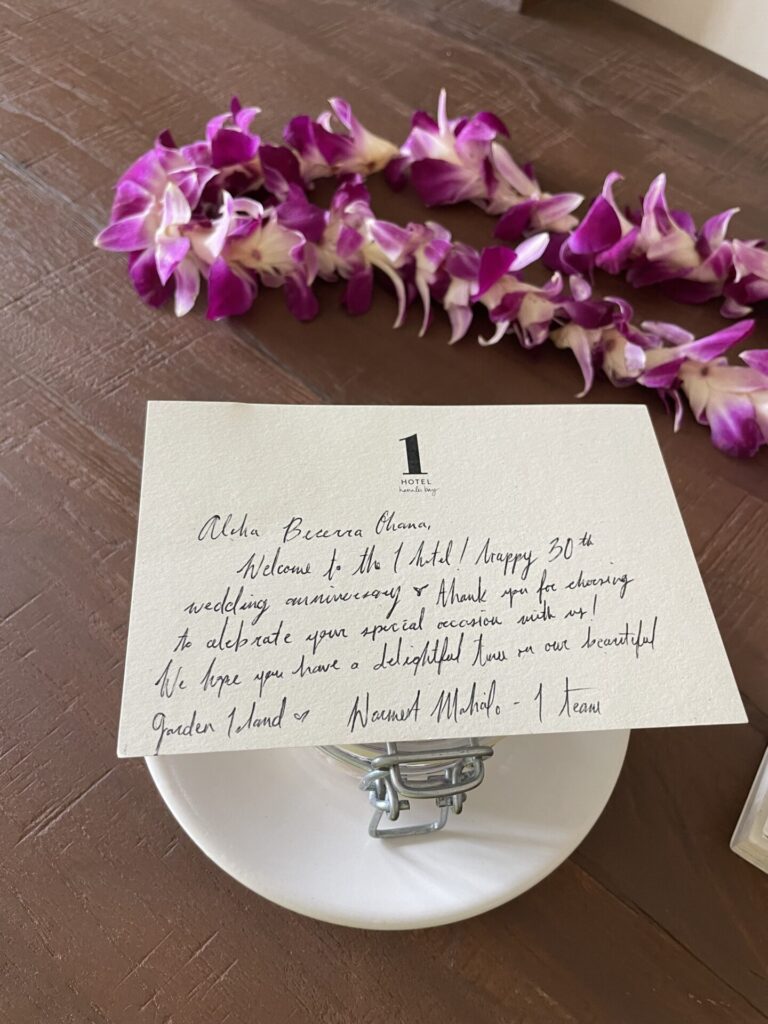 1
HOTEL
hanalei bay
Aloha Becerra Ohana,
Welcome to the 1 hotel! Happy 30th
wedding anniversary ♥ thank you for choosing
to celebrate your special occasion with us!
We hope you have a delightful time on our beautiful
garden Island ♥ Warmest Mahalo - 1 team